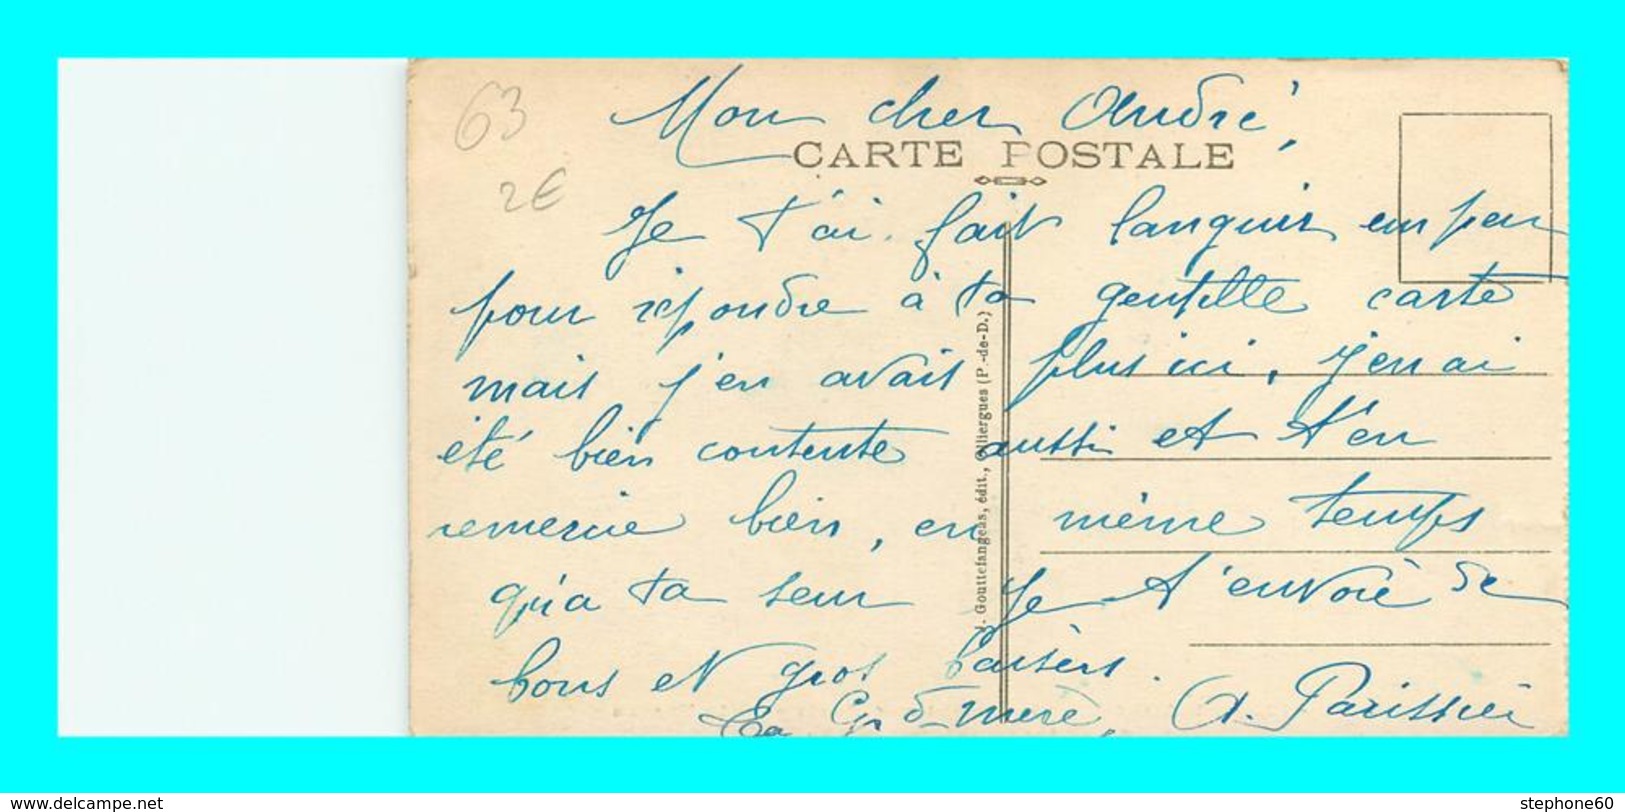 63
2€
Mon cher André,
CARTE POSTALE
Je t'ai fait languir un peu
pour répondre à ta gentille carte
mais j'en avait plus ici, j'en ai
été bien contente aussi et t'en
remercie bien, en même temps
qu'a ta seur Je t'envoie de
bons et gros baisers.
Ta Gd-mere, A. Parissier
J. Gouttefangeas, édit., Olliergues (P.-de-D.)
www.delcampe.net
stephone60